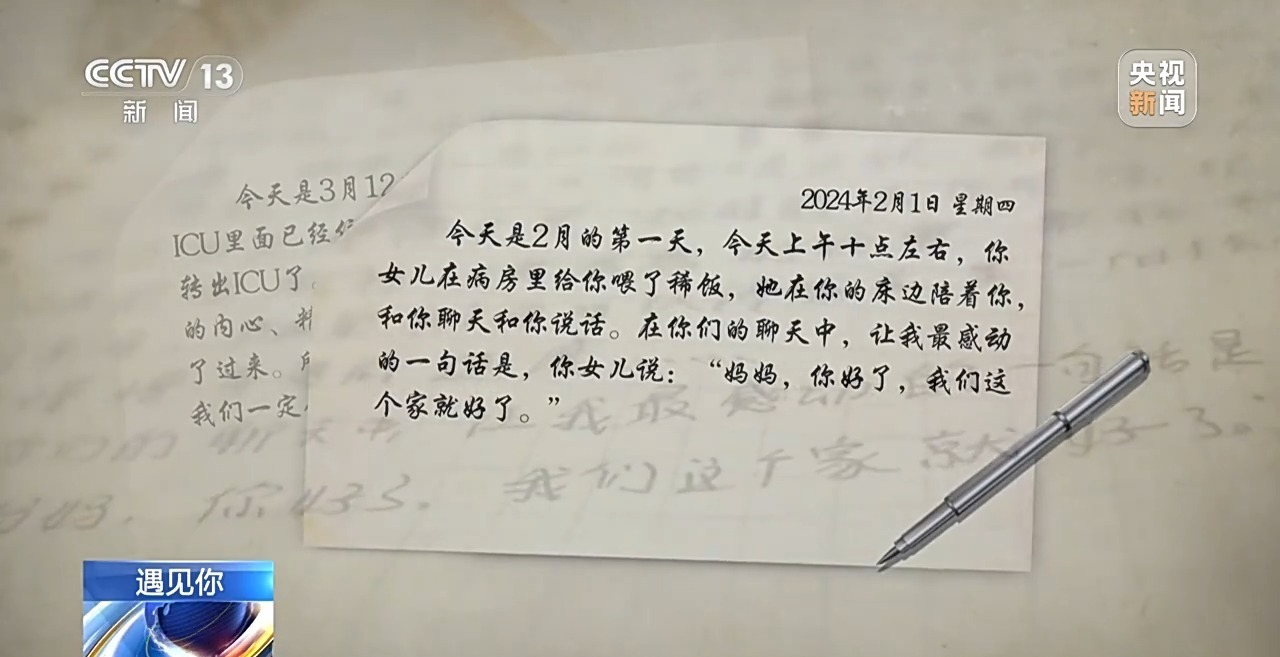 CCTV 13
新闻
央视
新闻
今天是3月12
ICU里面已经
转出ICU了
的内心、
了过来。
我们一定
2024年2月1日 星期四
今天是2月的第一天，今天上午十点左右，你
女儿在病房里给你喂了稀饭，她在你的床边陪着你，
和你聊天和你说话。在你们的聊天中，让我最感动
的一句话是，你女儿说：“妈妈，你好了，我们这
个家就好了。”
一句话是
我最感动
我们这个家就好了。
遇见你